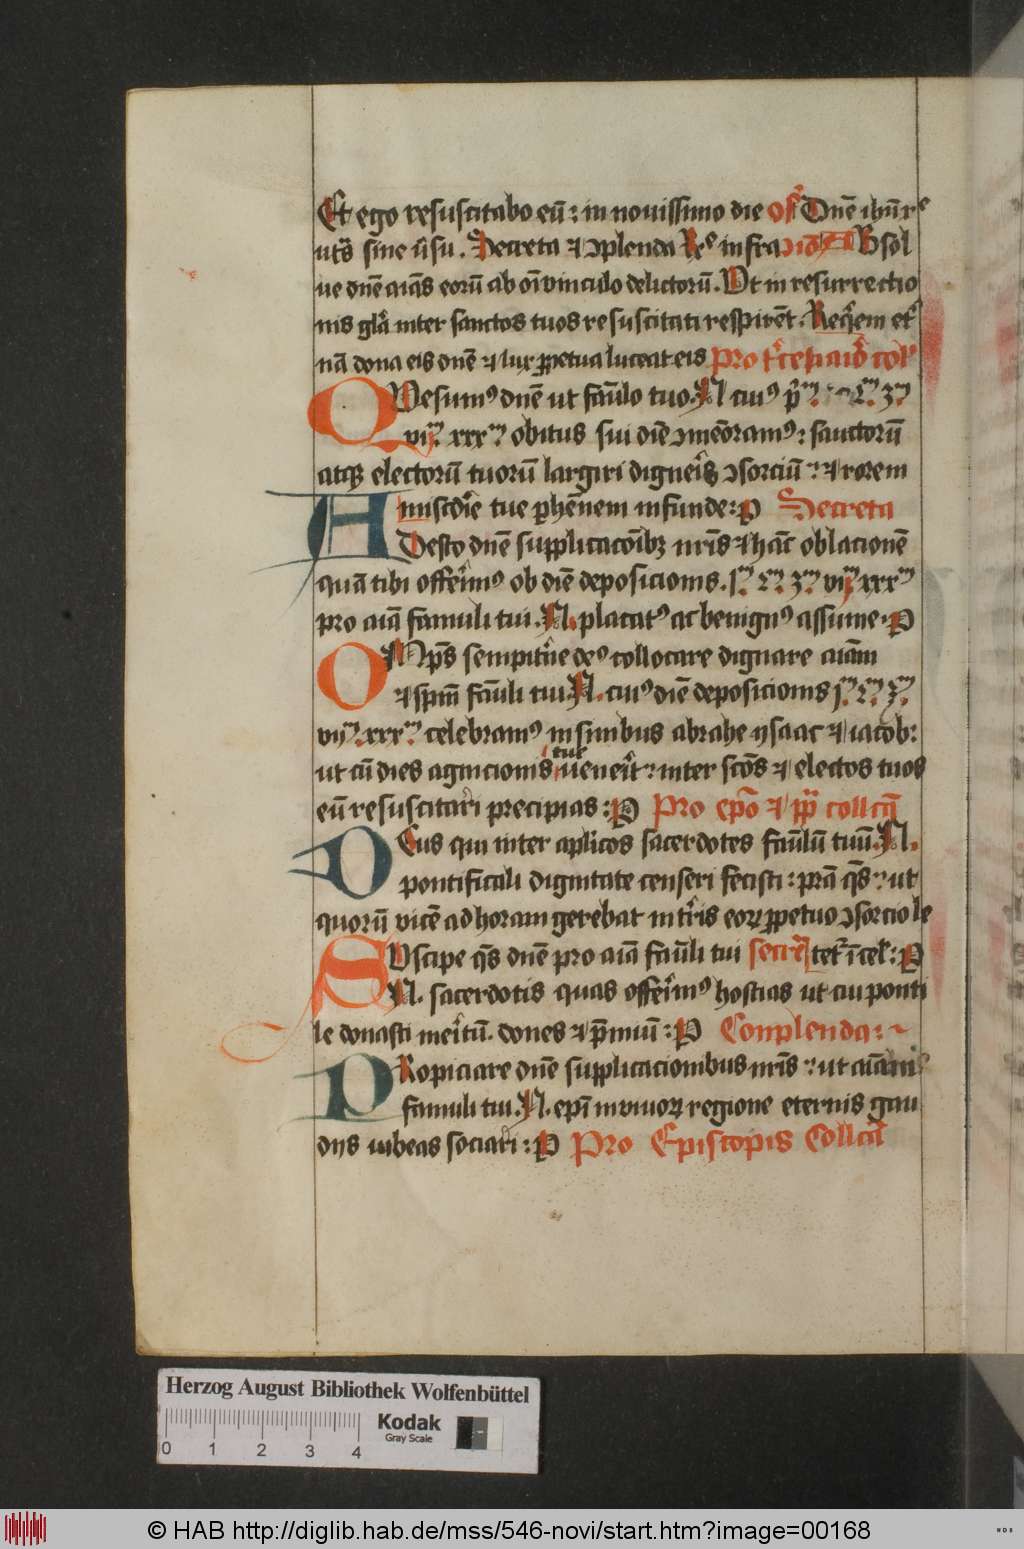 Et ego resuscitabo eū: in nouissimo die off Dnē ihū re
uts̄ sine ūsu. Secreta et ɔplenda Re infra Absol
ue dnē aīas eorū ab oī vinculo delictorū. Ut in resurrectio
nis glā inter sanctos tuos resuscitati respirēt. Reqēm et
nā dona eis dnē et lux ꝑpetua luceat eis Pro col
QVesumꝰ dnē ut fāulo tuo N cuiꝰ
vij xxx obitus sui diē ɔmēoramꝰ: sanctorū
atqꝫ electorū tuorū largiri digneīs ɔsorciū: et rorem
miscdīe tue ꝑhēnem infunde: P Secreta
ADesto dnē supplicacōibꝫ nrīs et hāc oblacionē
quā tibi offerīmꝰ ob diē deposicionis. vij xxx
pro aīa famuli tui. N. placatꝰ ac benignꝰ assume. P
OMps̄ sempitnē deꝰ collocare dignare aīam
et spm̄ fāuli tui N. cuiꝰ diē deposicionis
vij. xxx celebramꝰ in sinibus abrahe ysaac et iacob:
ut cū dies agnicionis tue ūeneīt: inter scōs et electos tuos
eū resuscitari precipias: P Pro epō et collcā
DEus qui inter aplicos sacerdotes fāulū tuū. N.
pontificali dignitate censeri fecisti: prā qs̄: ut
quorū vicē ad horam gerebat in trīs eoꝝ ꝑpetuo ɔsorcio le
SVscipe qs̄ dnē pro aīa fāuli tui secrē tet ī cel: P
N. sacerdotis quas offerīmꝰ hostias ut cui ponti
le donasti merītū. dones et p̄miū: P Conplenda:
PRopiciare dnē supplicacionibus nrīs: ut aīam
famuli tui. N. epī in viuoꝝ regione eternis gau
dijs iubeas sociari: P Pro Episcopis Collcā
Herzog August Bibliothek Wolfenbüttel
0 1 2 3 4
Kodak
Gray Scale
© HAB http://diglib.hab.de/mss/546-novi/start.htm?image=00168